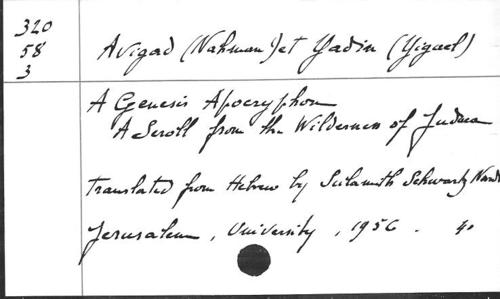 320
58
3
Avigad (Nahman) et Yadin (Yigael)
A Genesis Apocryphon
A Scroll from the Wilderness of Judaea
Translated from Hebrew by Sulamith Schwartz Nardi
Jerusalem, University, 1956. 4°